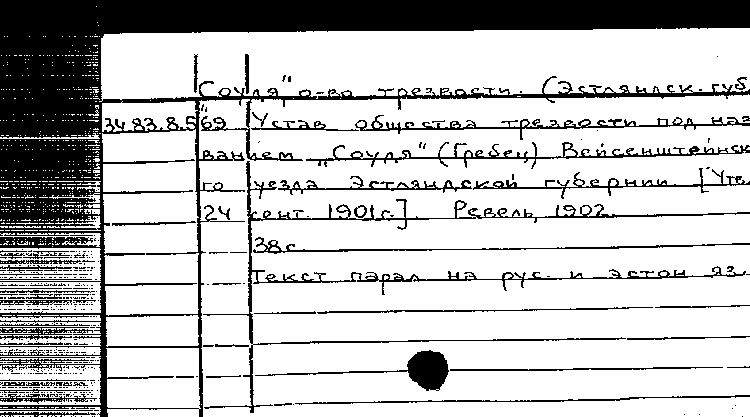 Соудя" о-во трезвости. (Эстляндск. губ.
34 83.8.569 Устав общества трезвости под наз
ванием „Соудя" (Гребец) Вейсенштейнск
го уезда Эстляндской губернии. [Утв.
24 сент. 1901г.]. Ревель, 1902.
38с.
Текст парал на рус. и эстон яз.